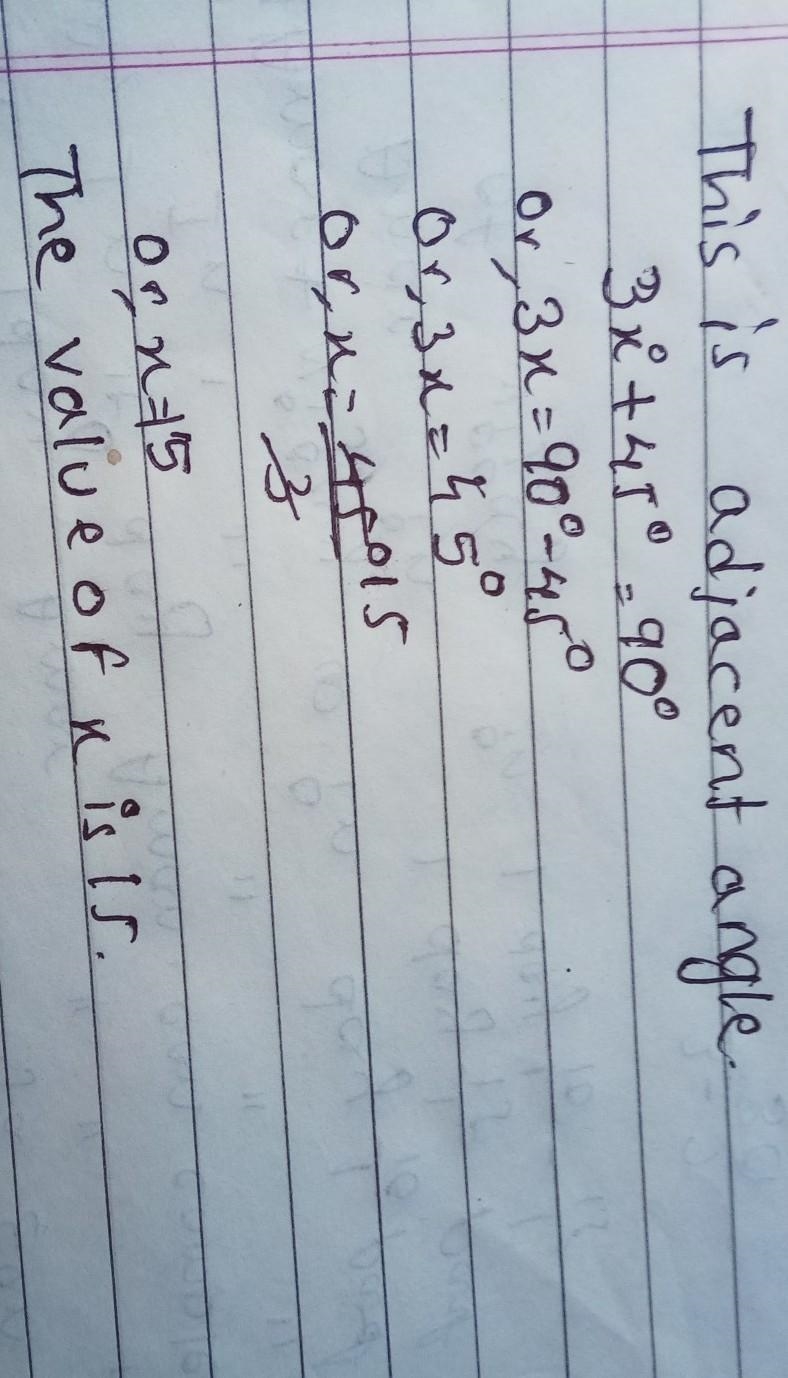 This is adjacent angle.
3x° + 45° = 90°
or, 3x = 90° - 45°
or, 3x = 45°
or, x = 45° 15
3
or, x = 15
The value of x is 15.